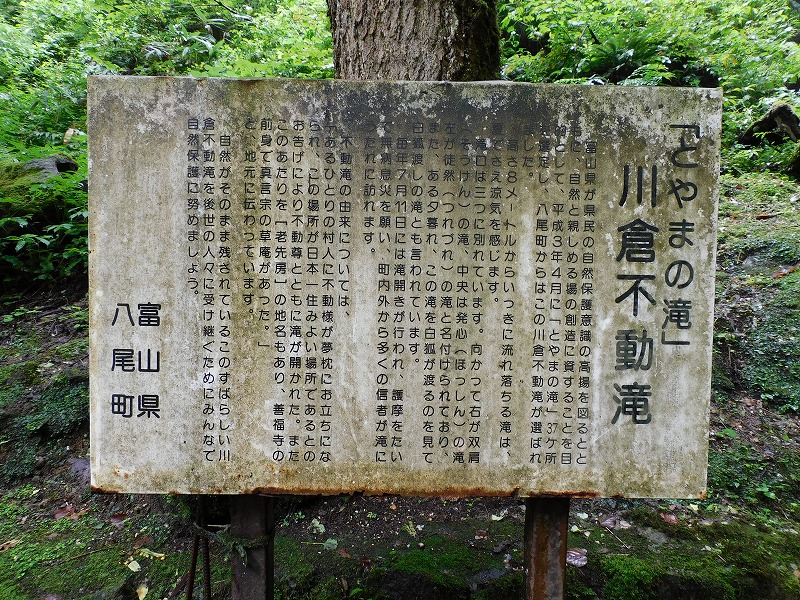 「とやまの滝」
川倉不動滝
富山県が県民の自然保護意識の高揚を図るとと
に、自然と親しめる場の創造に資することを目
的として、平成3年4月に「とやまの滝」37ケ所
選定し、八尾町からはこの川倉不動滝が選ばれ
ました。
高さ8メートルからいっきに流れ落ちる滝は、
夏でさえ流気を感じます。
滝口は三つに別れています。向かって右が双肩
（そうけん）の滝、中央は発心（ほっしん）の滝
左が徒然（つれづれ）の滝と名付けられており、
また、ある夕暮れ、この滝を白狐が渡るのを見て
白狐渡しの滝とも言われています。
毎年7月11日には滝開きが行われ、護摩をたい
て無病息災を願い、町内外から多くの信者が滝に
うたれに訪れます。
不動滝の由来については、
「あるひとりの村人に不動様が夢枕にお立ちにな
られ、この場所が日本一住みよい場所であるとの
お告げにより不動尊とともに滝が開かれた。また
このあたりを「老先房」の地名もあり、善福寺の
前身で真言宗の草庵があった。」
と、地元に伝わっています。
自然がそのまま残されているこのすばらしい川
倉不動滝を後世の人々に受け継ぐためにみんなで
自然保護に努めましょう。
富山県
八尾町